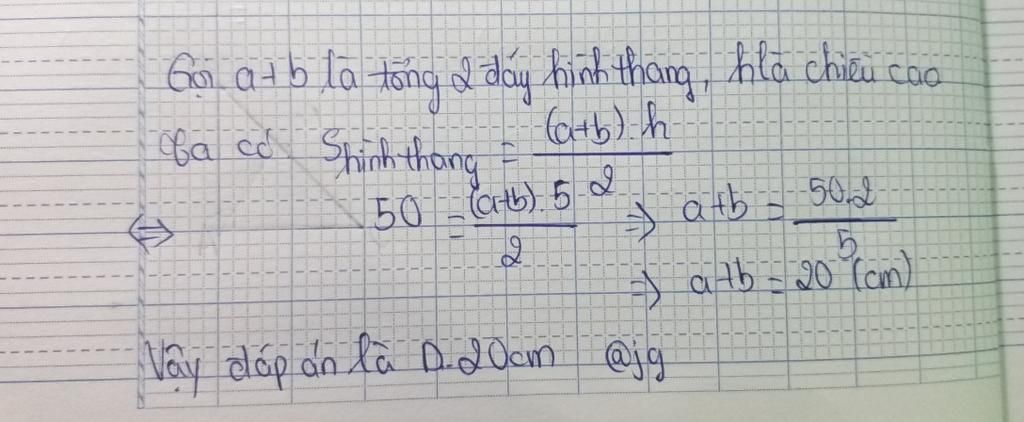 Gọi a+b là tổng 2 đáy hình thang, h là chiều cao
Ta có S hình thang = (a+b).h / 2
⇔ 50 = (a+b).5 / 2 ⇒ a+b = 50.2 / 5
⇒ a+b = 20 (cm)
Vậy đáp án là D.20cm @jg